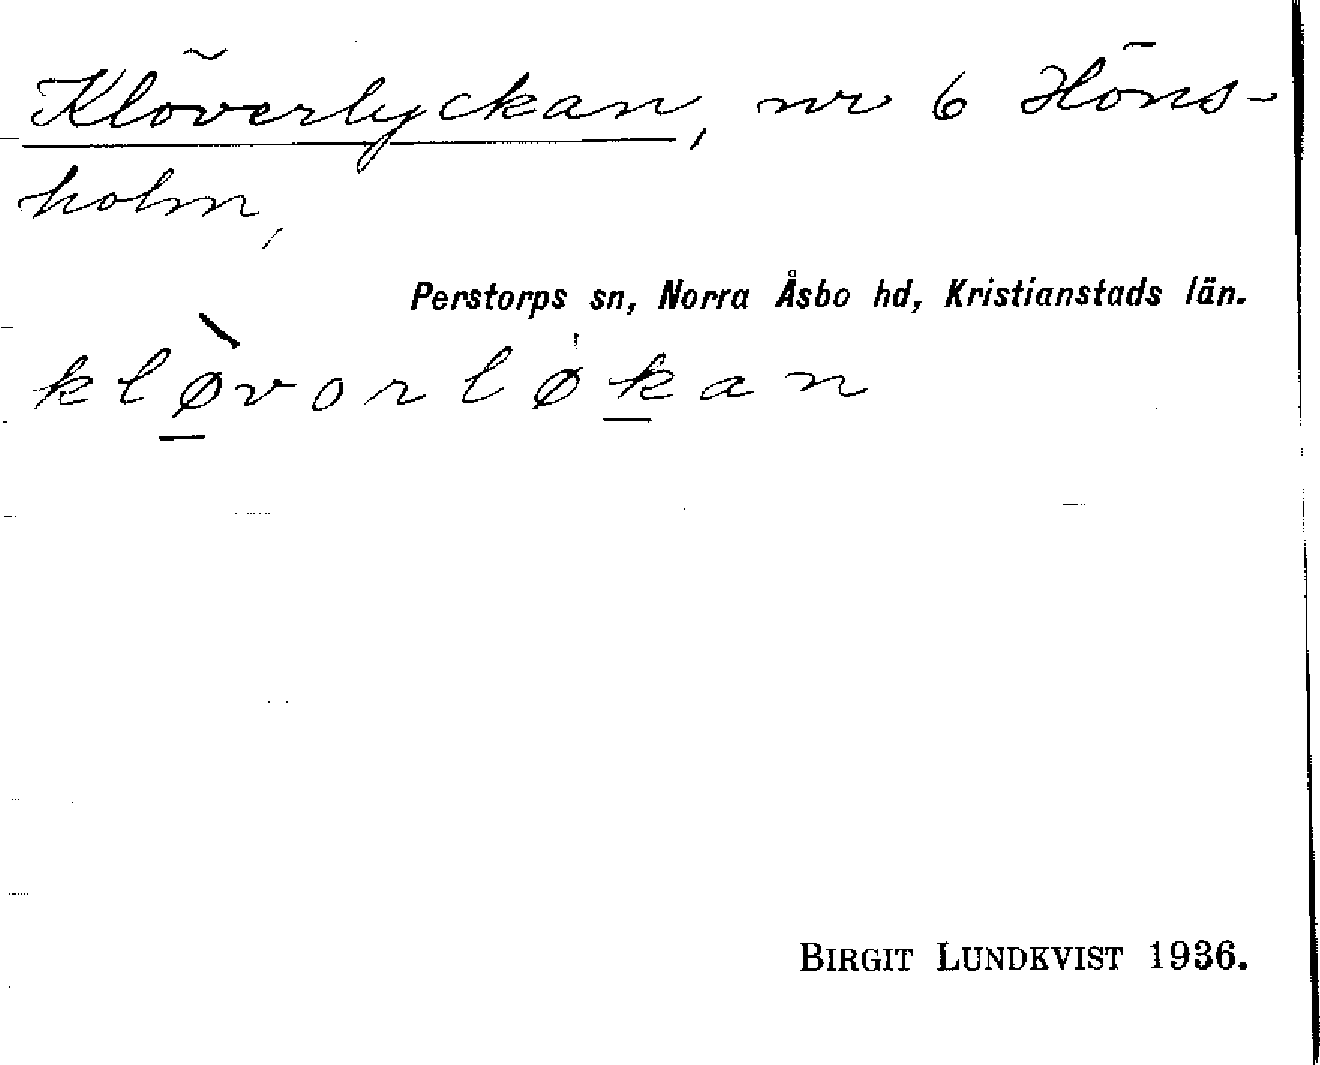 Klöverlyckan, nr 6 Höns-
holm,
Perstorps sn, Norra Åsbo hd, Kristianstads län.
klø̠̀vorløk̠an
BIRGIT LUNDKVIST 1936.